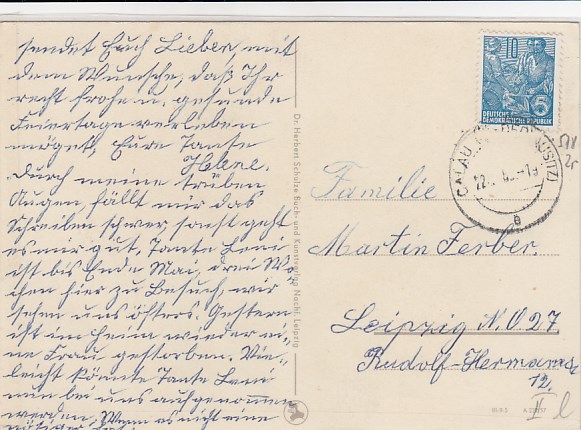 sendet Euch Lieben, mit
dem Wunsche, daß Ihr
recht frohe u. gesunde
Feiertage verleben
möget, Eure Tante
Helene.
Durch meine trüben
Augen fällt mir das
Schreiben schwer, sonst geht
es mir gut, Tante Leni
ist bis Ende Mai, drei Wo
chen hier zu Besuch, wir
sehen uns öfters. Gestern
ist im Heim wieder ei
ne Frau gestorben. Vie-
leicht könnte Tante Leni
nun bei uns aufgenommen
werden, Wenn es nicht eine
Dr. Herbert Schulze Buch- und Kunstverlag Nachf. Leipzig
10
5
DEUTSCHE
DEMOKRATISCHE REPUBLIK
CALAU
Familie
Martin Ferber.
Leipzig N.O 27
Rudolf-Hermannstr
12.
II l